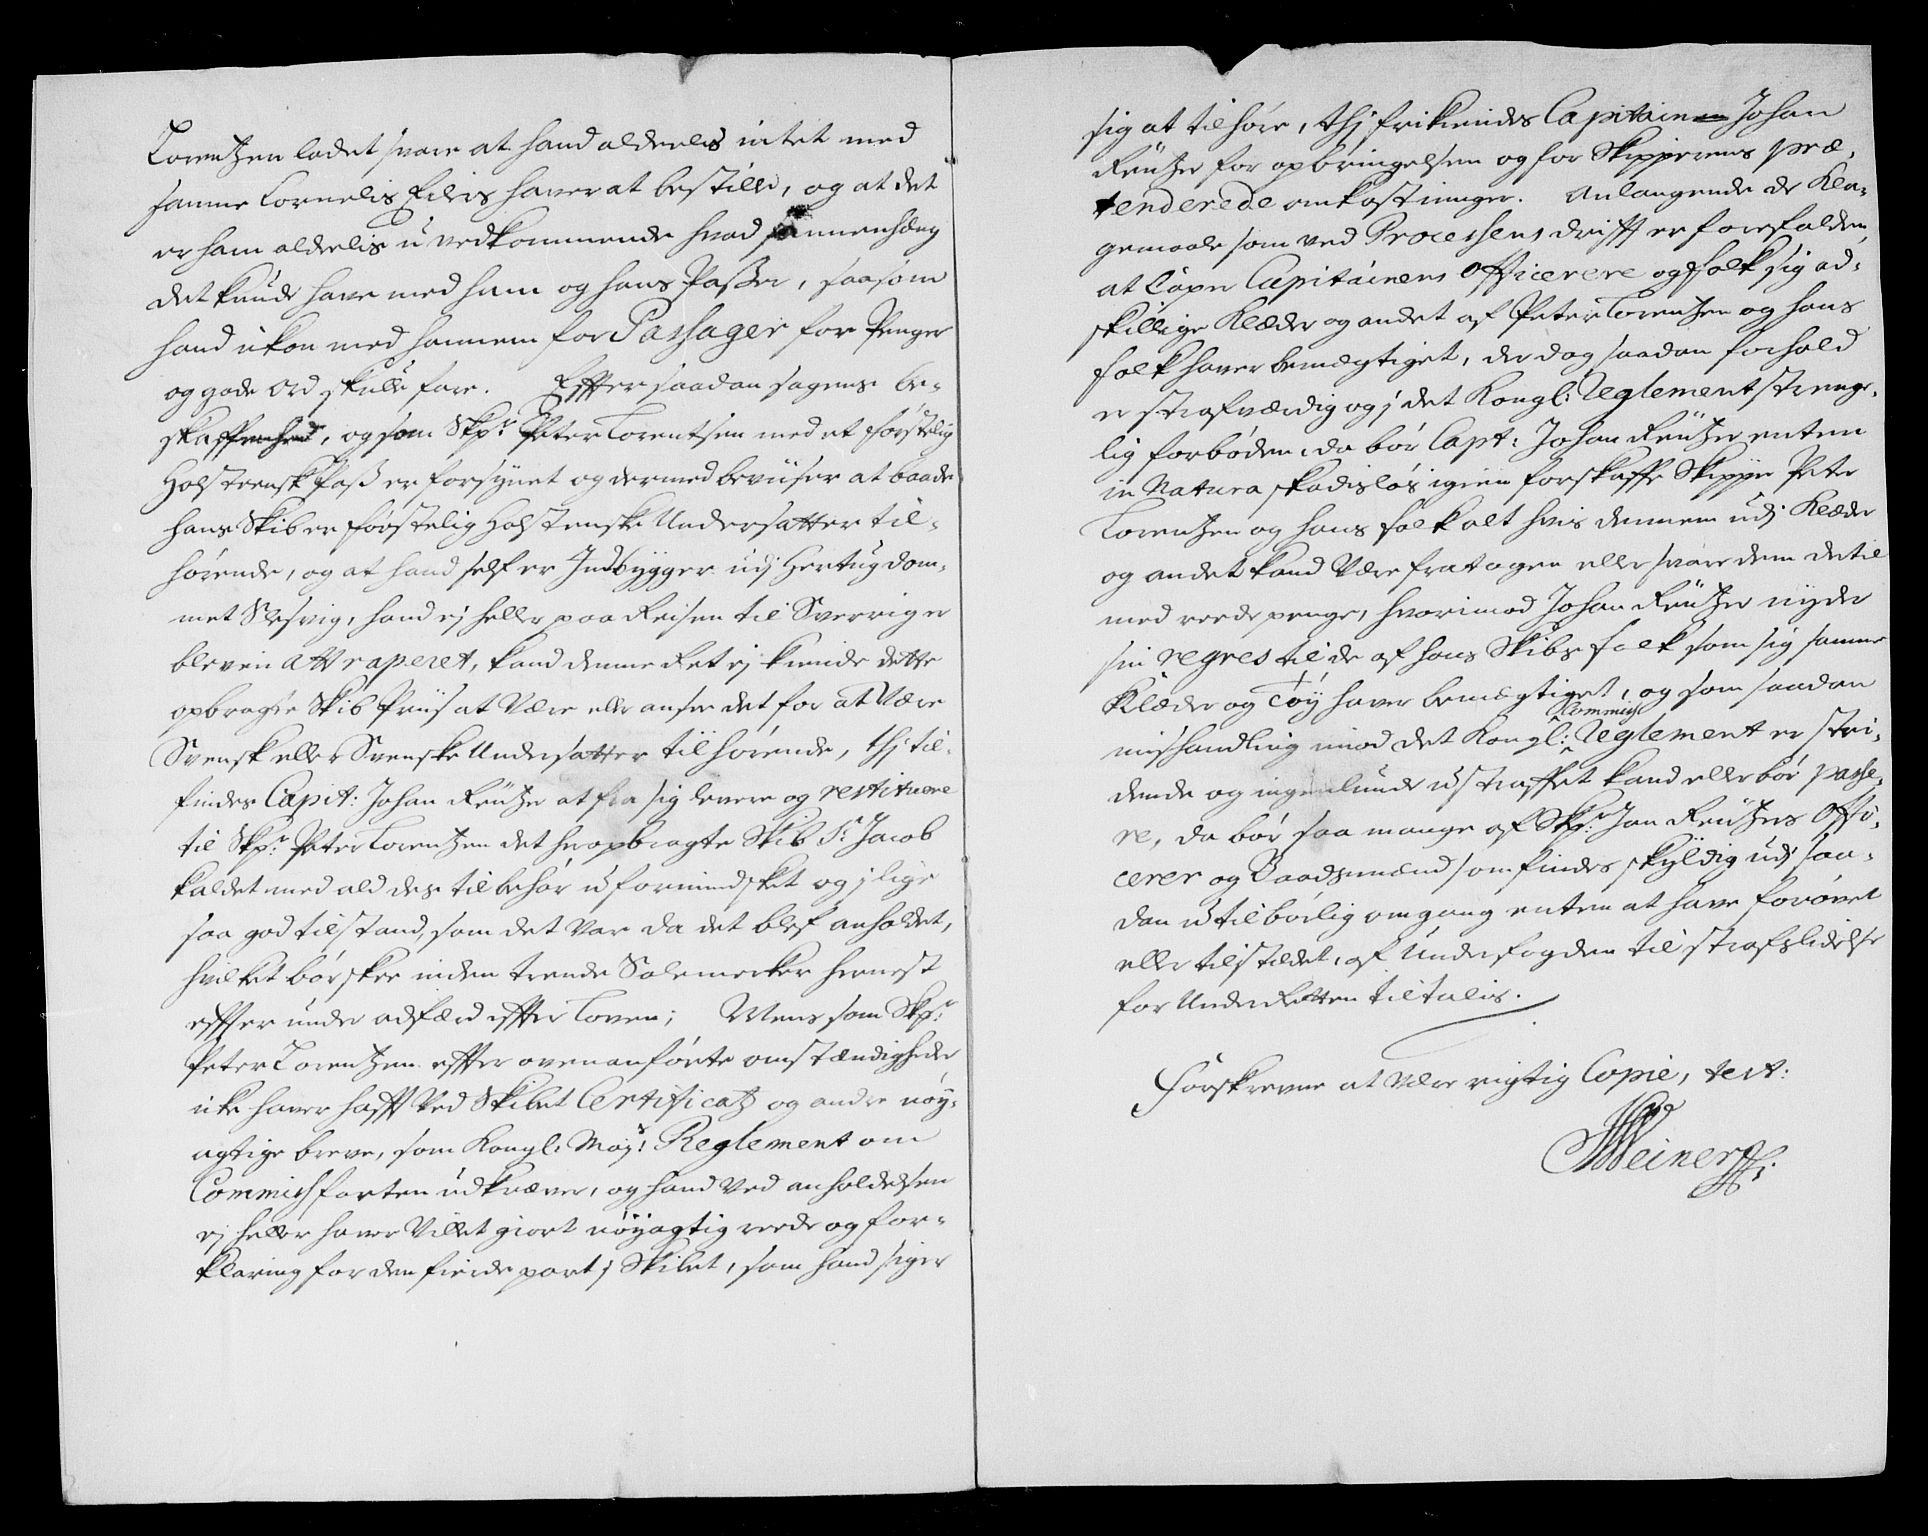 Lorentzen ladet svare at hand alderlis intet med
samme Cornelis Eilers haver at bestille, og at det
er ham alderlis u vedkommende hvad sammenhæng
det kunde have med ham og hans Passer, saasom
hand ikon med hannem for Passager for Penger
og gode ord skulle fare. Effter saadan sagens be-
skaffenhed, og som Skpr Peter Lorentsen med et førstelig
Holsteensk Pass er forsynet og dermed beviiser at baade
hans Skib er førstelig Holstenske Undersatter til-
hørende, og at hand self er Indbygger udj Hertugdom-
met Slesvig, hand ej heller paa Reisen til Sverrig er
bleven attraperet, kand denne Ret ej kiende dette
opbragte Skib Priis at være eller ansee det for at være
Svensk eller Svenske Undersatter tilhørende, thj til-
findes Capit: Johan Reutzer at fra sig levere og restituere
til Skpr Peter Lorentzen det heropbragte Skib St Jacob
kaldet med ald des tilbehør uformindsket og j lige
saa god tilstand, som det var da det blef anholdet,
hvilket bør skee inden trende Solemercker hernest
effter under adfærd effter Loven; Mens som Skpr
Peter Lorentzen effter ovenanførte omstændigheder
icke haver hafft ved Skibet Certificatz og andre nøy-
agtige breve, som Kongl: Mayts Reglement om
Commissfarten udkræver, og hand ved anholdelsen
ej heller haver villet giort nøyagtig reede og for-
klaring for den fierde part j Skibet, som hand siger
sig at tilhøre, thj frikiendes Capitain Johan
Reutzer for opbringelsen og for Skipperens præ-
tenderede omkostninger. Anlangende de Kla-
gemaale som ved Processens drifft er forefalden,
at Caper Capitainens Officerere og folk sig ad-
skillige Klæder og andet af Peter Lorentzen og hans
folk haver bemægtiget, da dog saadan forhold
er strafværdig og j det Kongl: Reglement strenge-
lig forbøden, da bør Capt: Johan Reutzer enten
in Natura skadisløs igien forskaffe Skipper Peter
Lorentzen og hans folk alt hvis dennem udj Klæder
og andet kand være fratagen eller svare dem dertil
med reede penge, hvorimod Johan Reutzer nyder
sin regres til de af hans Skibs folk som sig samme
Klæder og Tøy haver bemægtiget, og som saadan
Commiss
mishandling imod det Kongl: Reglement er stri-
dende og ingenlunde ustraffet kand eller bør passe-
re, da bør saa mange af Skpr Jan Reutzers Offi-
cerer og Baadsmænd som findes skyldig udj saa-
dan utilbørlig omgang enten at have forøvet
eller tilstædet, af Underfogden til strafs lidelse
for Under Retten tiltalis.
Forskrevne at være rigtig Copie, test:
Weiner